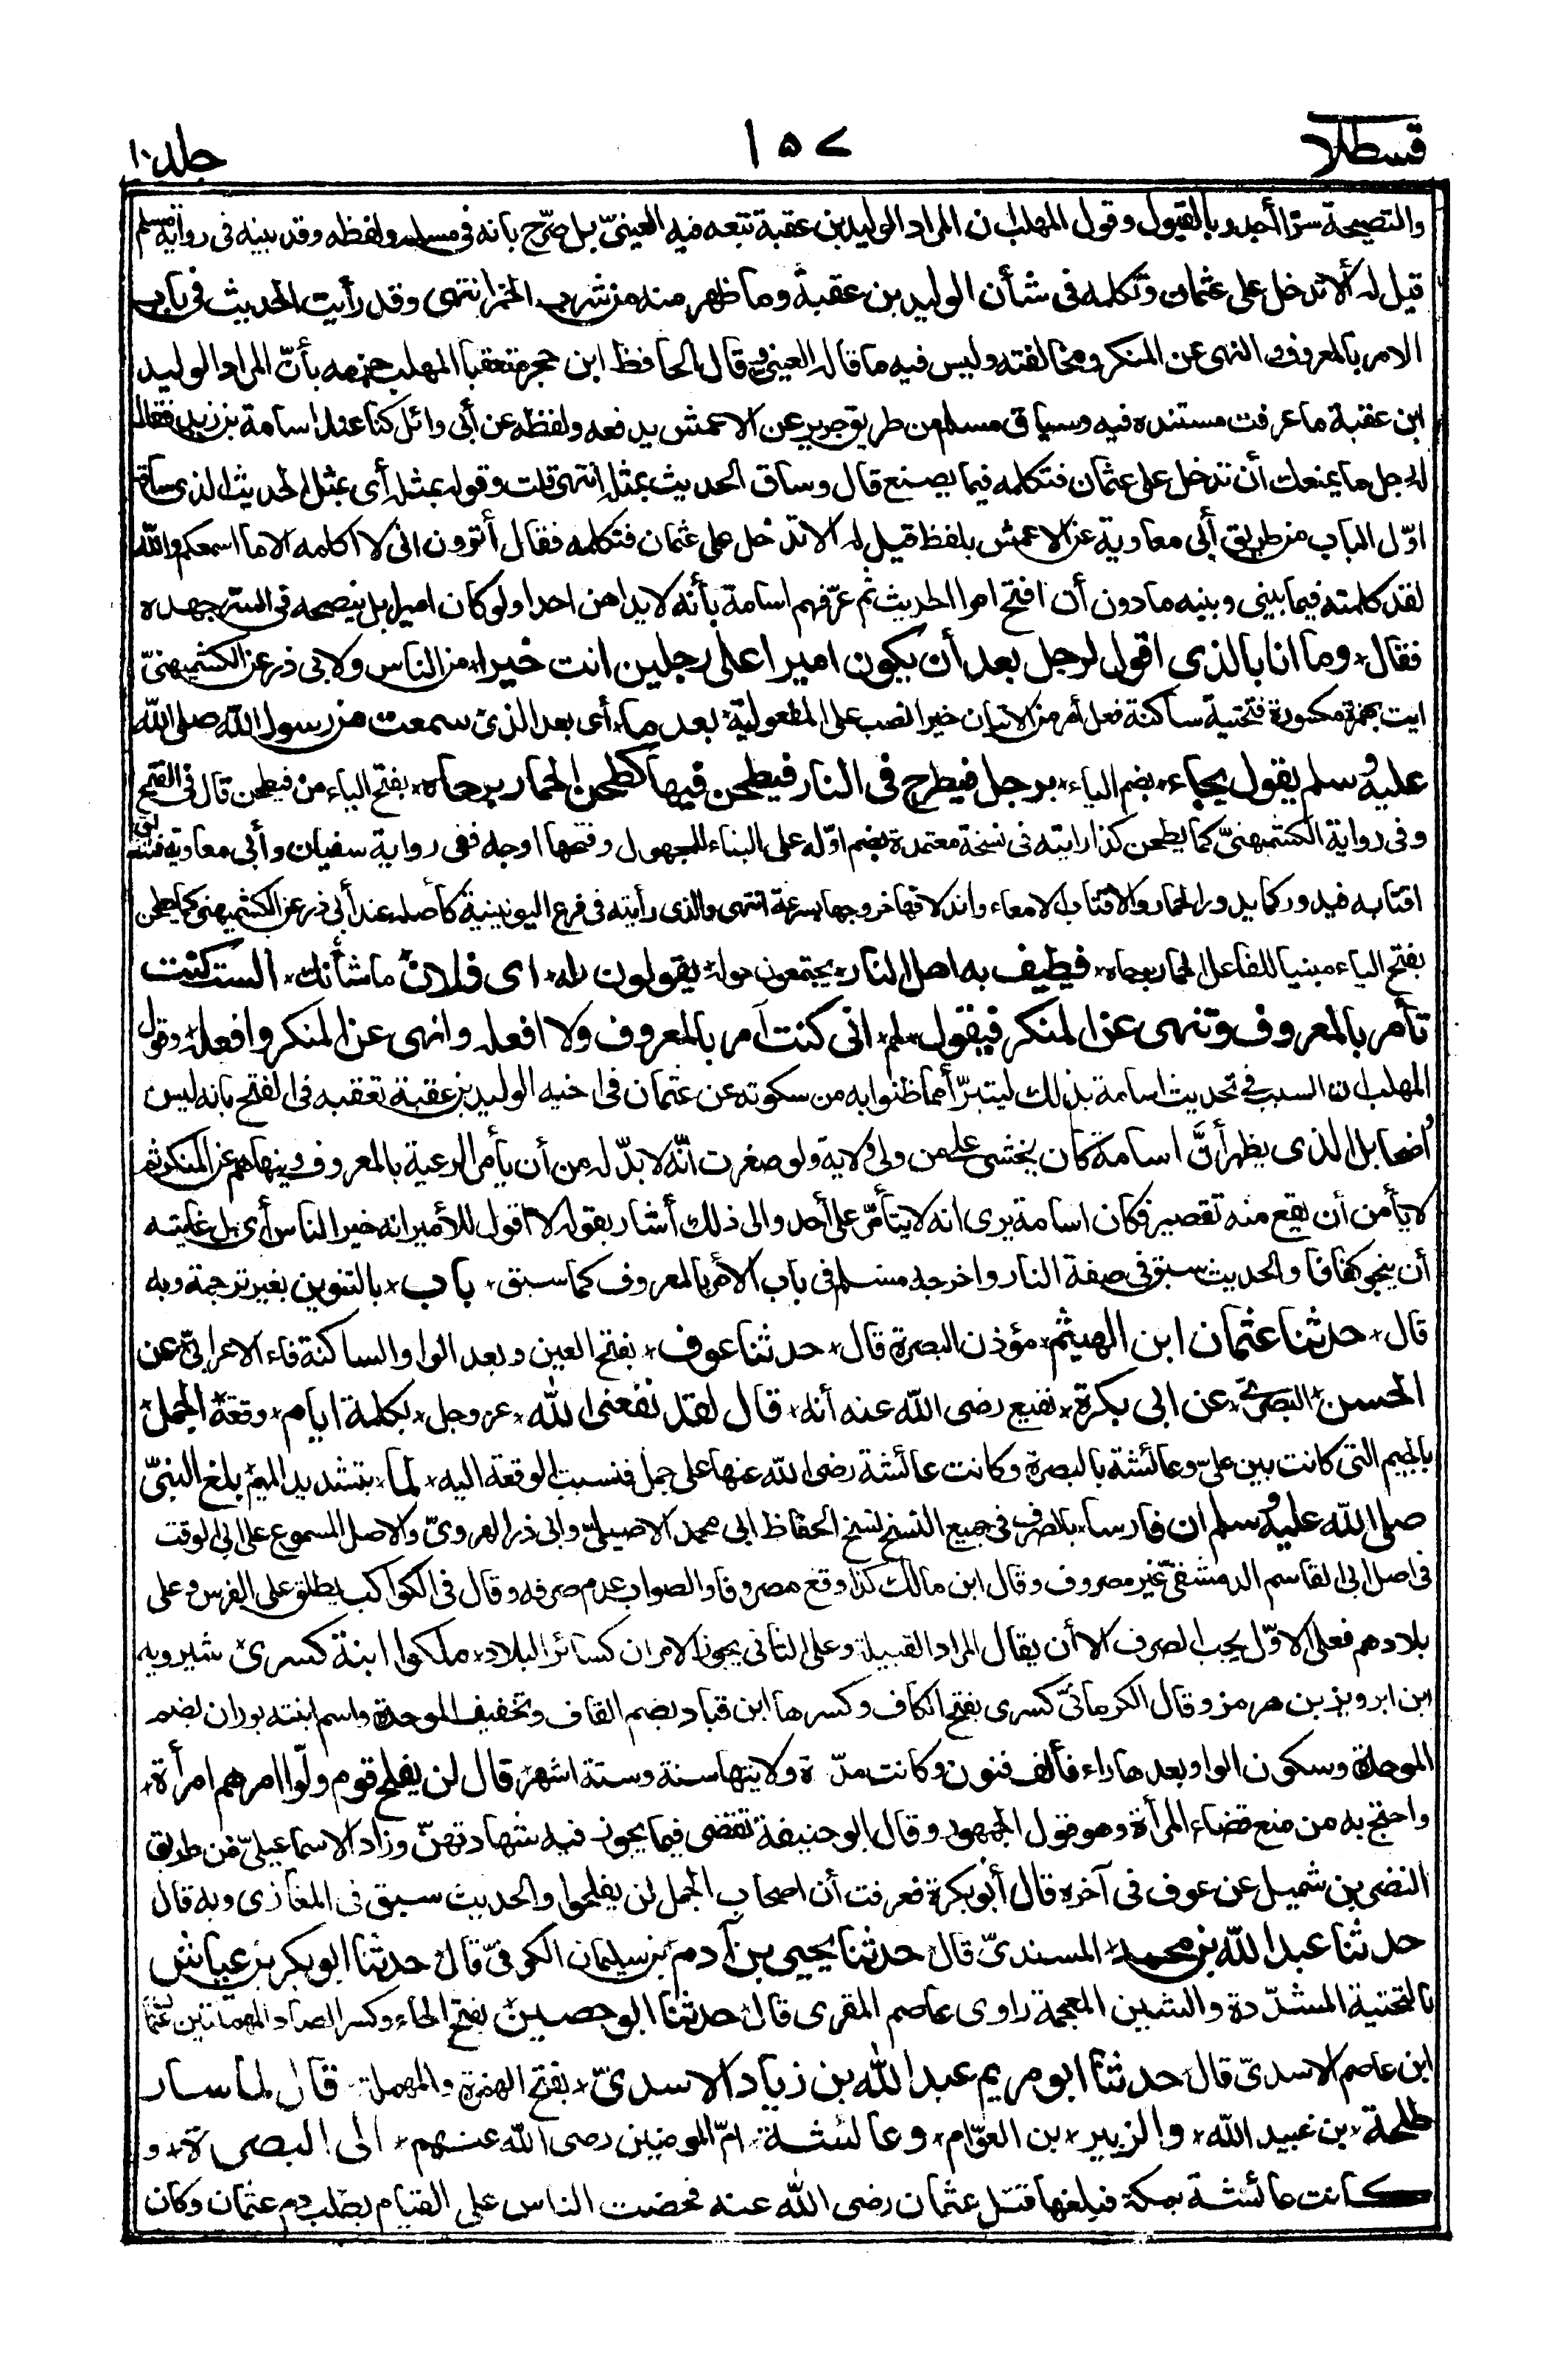 قسطلا ١٥٧ جلد ١٠
والنصيحة سرّا أجدر بالقبول وقول المهلب ان المراد الوليد بن عقبة تبعه فيه العينيّ بل صرّح بانه في مسلم ولفظه وقد بينه في رواية مسلم
قيل له ألا تدخل على عثمان وتكلمه في شأن الوليد بن عقبة وما ظهر منه من شرب الخمر انتهى وقد رأيت الحديث في باب
الامر بالمعروف والنهى عن المنكر ومخالفته وليس فيه ما قاله العينيّ وقال الحافظ ابن حجر متعقبا المهلب جزمه بأنّ المراد الوليد
ابن عقبة ما عرفت مستنده فيه وسياق مسلم من طريق جرير عن الاعمش يدفعه ولفظه عن أبى وائل كنا عند اسامة بن زيد فقال
له رجل ما يمنعك أن تدخل على عثمان فتكلمه فيما يصنع قال وساق الحديث بمثله انتهى قلت وقوله بمثله أى بمثل الحديث الذى ساقه
اوّل الباب من طريق أبى معاوية عن الاعمش بلفظ قيل له الا تدخل على عثمان فتكلمه فقال أترون انى لا اكلمه الا ما اسمعكم والله
لقد كلمته فيما بينى وبينه ما دون أن افتح امرا الحديث ثم عرّفهم اسامة بأنه لا يداهن احدا ولو كان اميرا بل ينصحه في السرّ جهده
فقال* وما انا بالذى اقول لرجل بعد أن يكون اميرا على رجلين انت خير* من الناس ولابى ذر عن الكشميهنىّ
ايت بهمزة مكسورة فتحتية ساكنة فعل أمر من الاتيان خيرا نصب على المفعولية* بعد ما* أى بعد الذى سمعت من رسول الله صلى الله
عليه وسلم يقول يجاء* بضم الياء* برجل فيطرح في النار فيطحن فيها كطحن الحمار برحاه* بفتح الياء من فيطحن قال في الفتح
وفى رواية الكشميهنىّ كما يطحن كذا رايته في نسخة معتمدة بضم اوّله على البناء للمجهول وفتحها اوجه ففى رواية سفيان وأبى معاوية فتندلق
اقتابه فيدور كما يدور الحمار والاقتاب الامعاء واندلاقها خروجها بسرعة انتهى والذى رأيته في فرع اليونينية كأصله عند أبى ذر عن الكشميهنى كما يطحن
بفتح الياء مبنيا للفاعل الحمار برحاه* فيطيف به اهل النار* يجتمعون حوله* فيقولون له* اى فلان ما شأنك* الست كنت
تأمر بالمعروف وتنهى عن المنكر فيقول* لهم* انى كنت آمر بالمعروف ولا افعله وانهى عن المنكر وافعله* وقول
المهلب ان السبب في تحديث اسامة بذلك ليتبرّأ مما ظنوا به من سكوته عن عثمان في اخيه الوليد بن عقبة تعقبه في الفتح بانه ليس
واضحا بل الذى يظهر أنّ اسامة كان يخشى على من ولى ولاية ولو صغرت انّه لا بدّ له من أن يأمر الرعية بالمعروف وينهاهم عن المنكر ثم
لا يأمن أن يقع منه تقصير فكان اسامة يرى انه لا يتأمّر على أحد والى ذلك أشار بقوله لا اقول للأمير انه خير الناس أى بل غايته
أن ينجو كفافا والحديث سبق في صفة النار واخرجه مسلم في باب الأمر بالمعروف كما سبق* باب* بالتنوين بغير ترجمة وبه
قال* حدثنا عثمان ابن الهيثم* مؤذن البصرة قال* حدثنا عوف* بفتح العين وبعد الواو الساكنة فاء الاعرابىّ عن
الحسن* البصرىّ* عن ابى بكرة* نفيع رضى الله عنه أنه* قال لقد نفعنى الله* عز وجل* بكلمة ايام* وقعة* الجمل*
بالجيم التى كانت بين علىّ وعائشة بالبصرة وكانت عائشة رضى الله عنها على جمل فنسبت الوقعة اليه* لما* بتشديد الميم بلغ النبىّ
صلى الله عليه وسلم ان فارسا* بالصرف في جميع النسخ لنسخ الحفاظ ابى محمد الاصيلىّ وابى ذر الهروىّ والاصل المسموع على ابى الوقت
في اصل ابى القاسم الدمشقىّ غير مصروف وقال ابن مالك كذا وقع مصروفا والصواب عدم صرفه وقال في الكواكب يطلق على الفرس وعلى
بلادهم فعلى الاوّل يجب الصرف الا أن يقال المراد القبيلة وعلى الثانى يجوز الامران كسائر البلاد* ملكوا ابنة كسرى* شيرويه
ابن ابرويز بن هرمز وقال الكرمانىّ كسرى بفتح الكاف وكسرها ابن قباد بضم القاف وتخفيف الموحدة واسم ابنته بوران بضم
الموحدة وسكون الواو بعدها راء فألف فنون وكانت مدّة ولايتها سنة وستة اشهر* قال لن يفلح قوم ولّوا امرهم امرأة*
واحتج به من منع قضاء المرأة وهو قول الجمهور وقال ابو حنيفة تقضى فيما يجوز فيه شهادتهنّ وزاد الاسماعيلىّ من طريق
النضر بن شميل عن عوف في آخره قال أبو بكرة فعرفت أن اصحاب الجمل لن يفلحوا والحديث سبق في المغازى وبه قال
حدثنا عبد الله بن محمد* المسندىّ قال* حدثنا يحيى بن آدم* بن سليمان الكوفىّ قال* حدثنا ابو بكر بن عياش
بالتحتية المشدّدة والشين المعجمة راوى عاصم المقرى قال* حدثنا ابو حصين* بفتح الحاء وكسر الصاد المهملتين عثمان
ابن عاصم الاسدىّ قال* حدثنا ابو مريم عبد الله بن زياد الاسدىّ* بفتح الهمزة والمهملة* قال لما سار
طلحة* بن عبيد الله* والزبير* بن العوّام* وعائشة* امّ المومنين رضى الله عنهم* الى البصرة* و
كانت عائشة بمكة فبلغها قتل عثمان رضى الله عنه فحضت الناس على القيام بطلب دم عثمان وكان